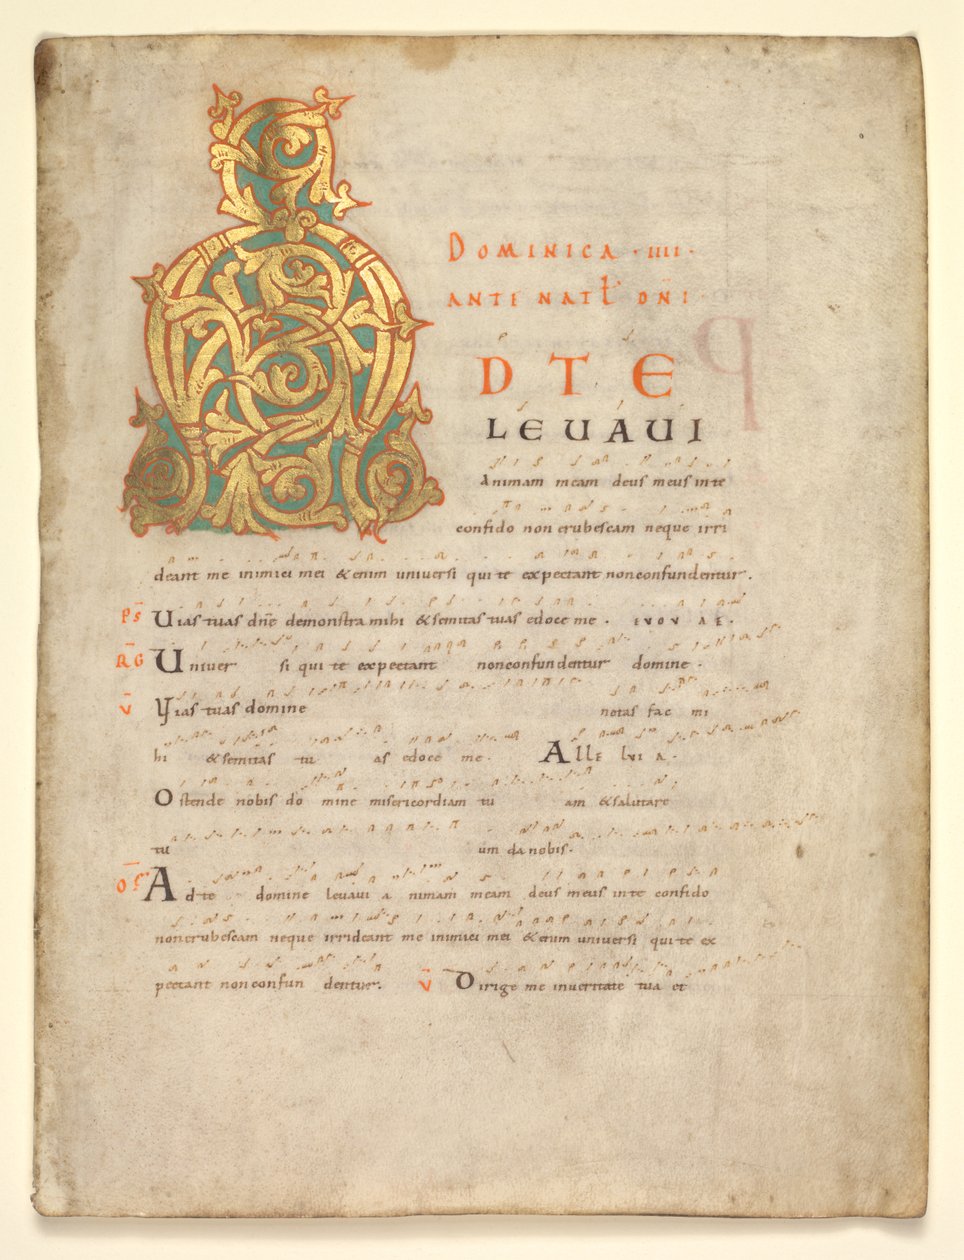 DOMINICA · IIII ·
ANTE NATƚ DN̄I ·
A D TE
LEUAUI
Animam meam deus meus in te
confido non erubescam neque irri
deant me inimici mei & enim universi qui te expectant non confundentur.
Ps̄ Uias tuas dn̄e demonstra mihi & semitas tuas edoce me · EVOVAE ·
R̄G Univer si qui te expectant non confundentur domine ·
V̄ Vias tuas domine notas fac mi
hi & semitas tu as edoce me · Alle lvi a ·
Ostende nobis do mine misericordiam tu am & salutare
tu um da nobis ·
Of̄ Ad te domine levavi a nimam meam deus meus in te confido
non erubescam neque irrideant me inimici mei & enim universi qui te ex
pectant non confun dentur. V̄ Dirige me in veritate tua et